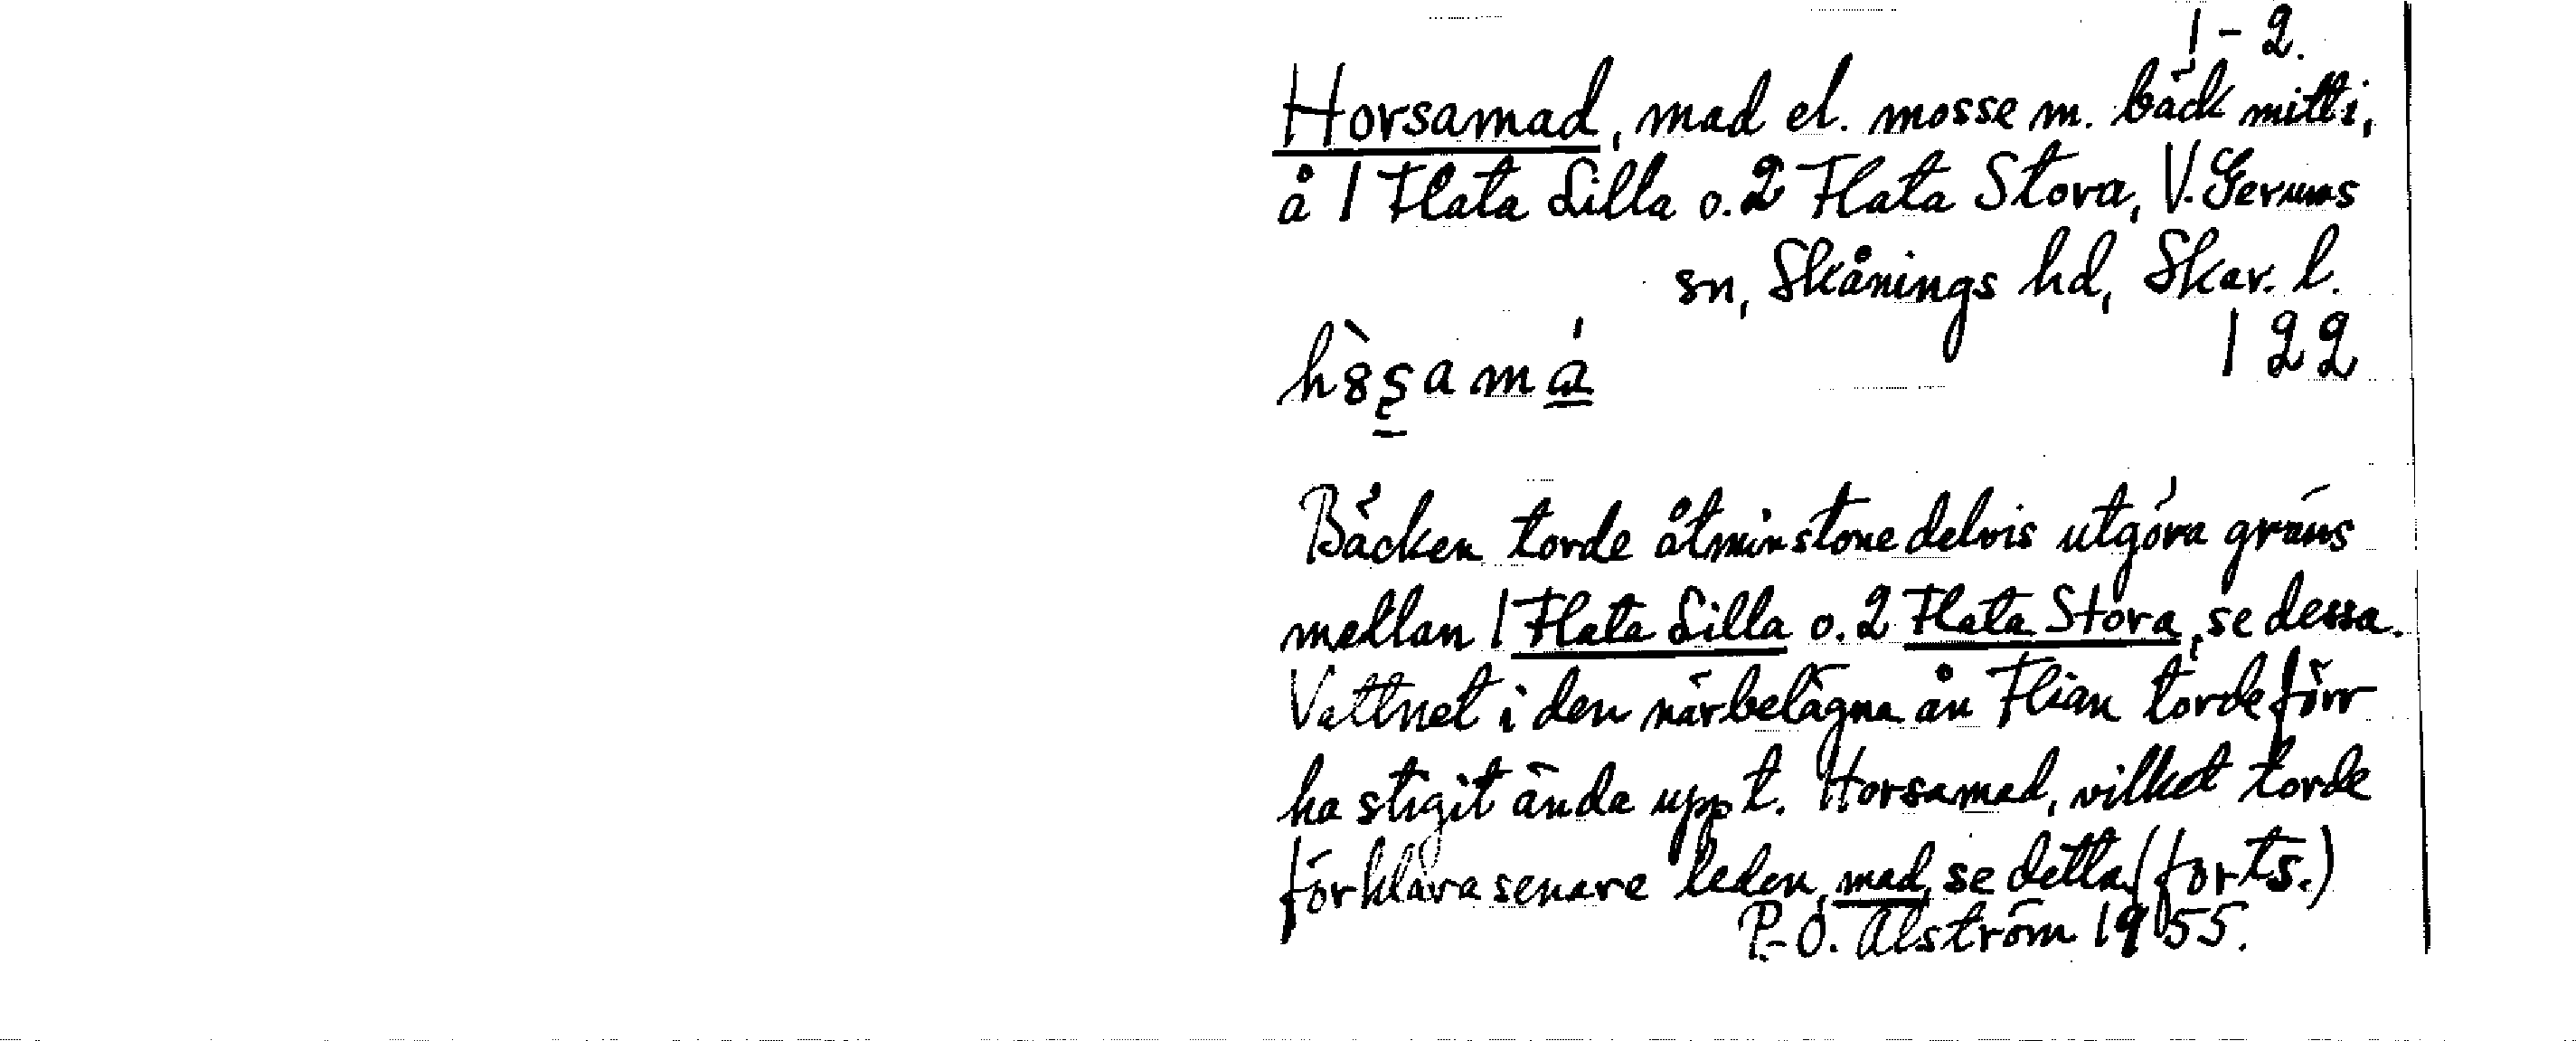 1-2.
Horsamad, mad el. mosse m. bäck mitti,
å 1 Flata Lilla o. 2 Flata Stora, V. Gerums
sn, Skånings hd, Skar. l.
122
Bäcken torde åtminstone delvis utgöra gräns
mellan 1 Flata Lilla o. 2 Flata Stora, se dessa.
Vattnet i den närbelägna ån Flian torde förr
ha stigit ända upp t. Horsamad, vilket torde
förklara senare leden, mad, se detta. (forts.)
P.-O. Alström 1955.